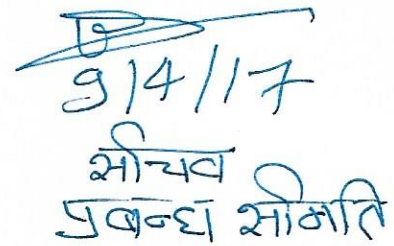 9/4/17
सचिव
प्रबन्ध समिति